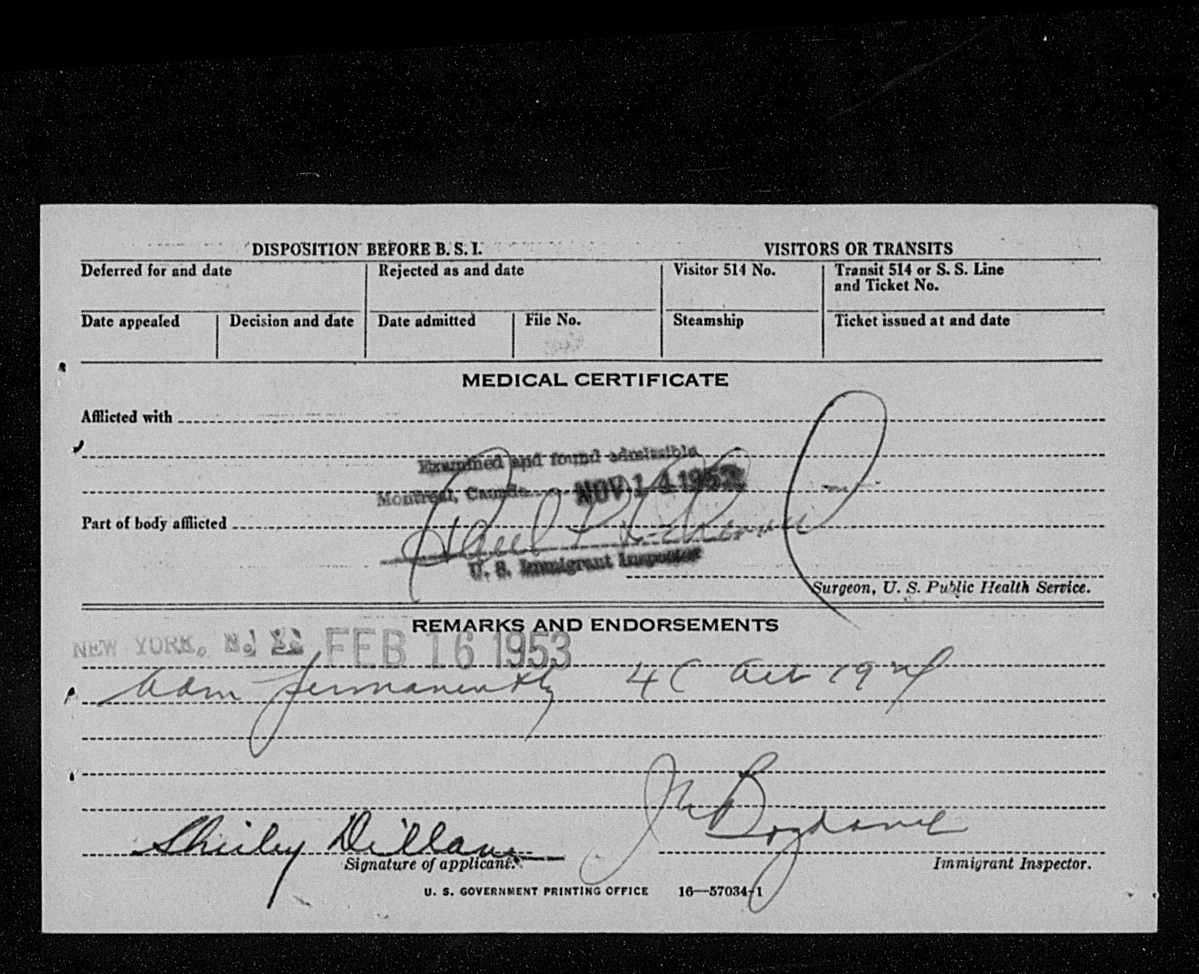 DISPOSITION BEFORE B. S. I.
VISITORS OR TRANSITS
Deferred for and date
Rejected as and date
Visitor 514 No.
Transit 514 or S. S. Line
and Ticket No.
Date appealed
Decision and date
Date admitted
File No.
Steamship
Ticket issued at and date
MEDICAL CERTIFICATE
Afflicted with
Examined and found admissible
Montreal, Canada NOV 14 1952
Part of body afflicted
U. S. Immigrant Inspector
Surgeon, U. S. Public Health Service.
REMARKS AND ENDORSEMENTS
NEW YORK, N. Y. FEB 16 1953
Adm permanently 4C Act 1924
Shirley Dillane
Signature of applicant.
Immigrant Inspector.
U. S. GOVERNMENT PRINTING OFFICE 16—57034-1